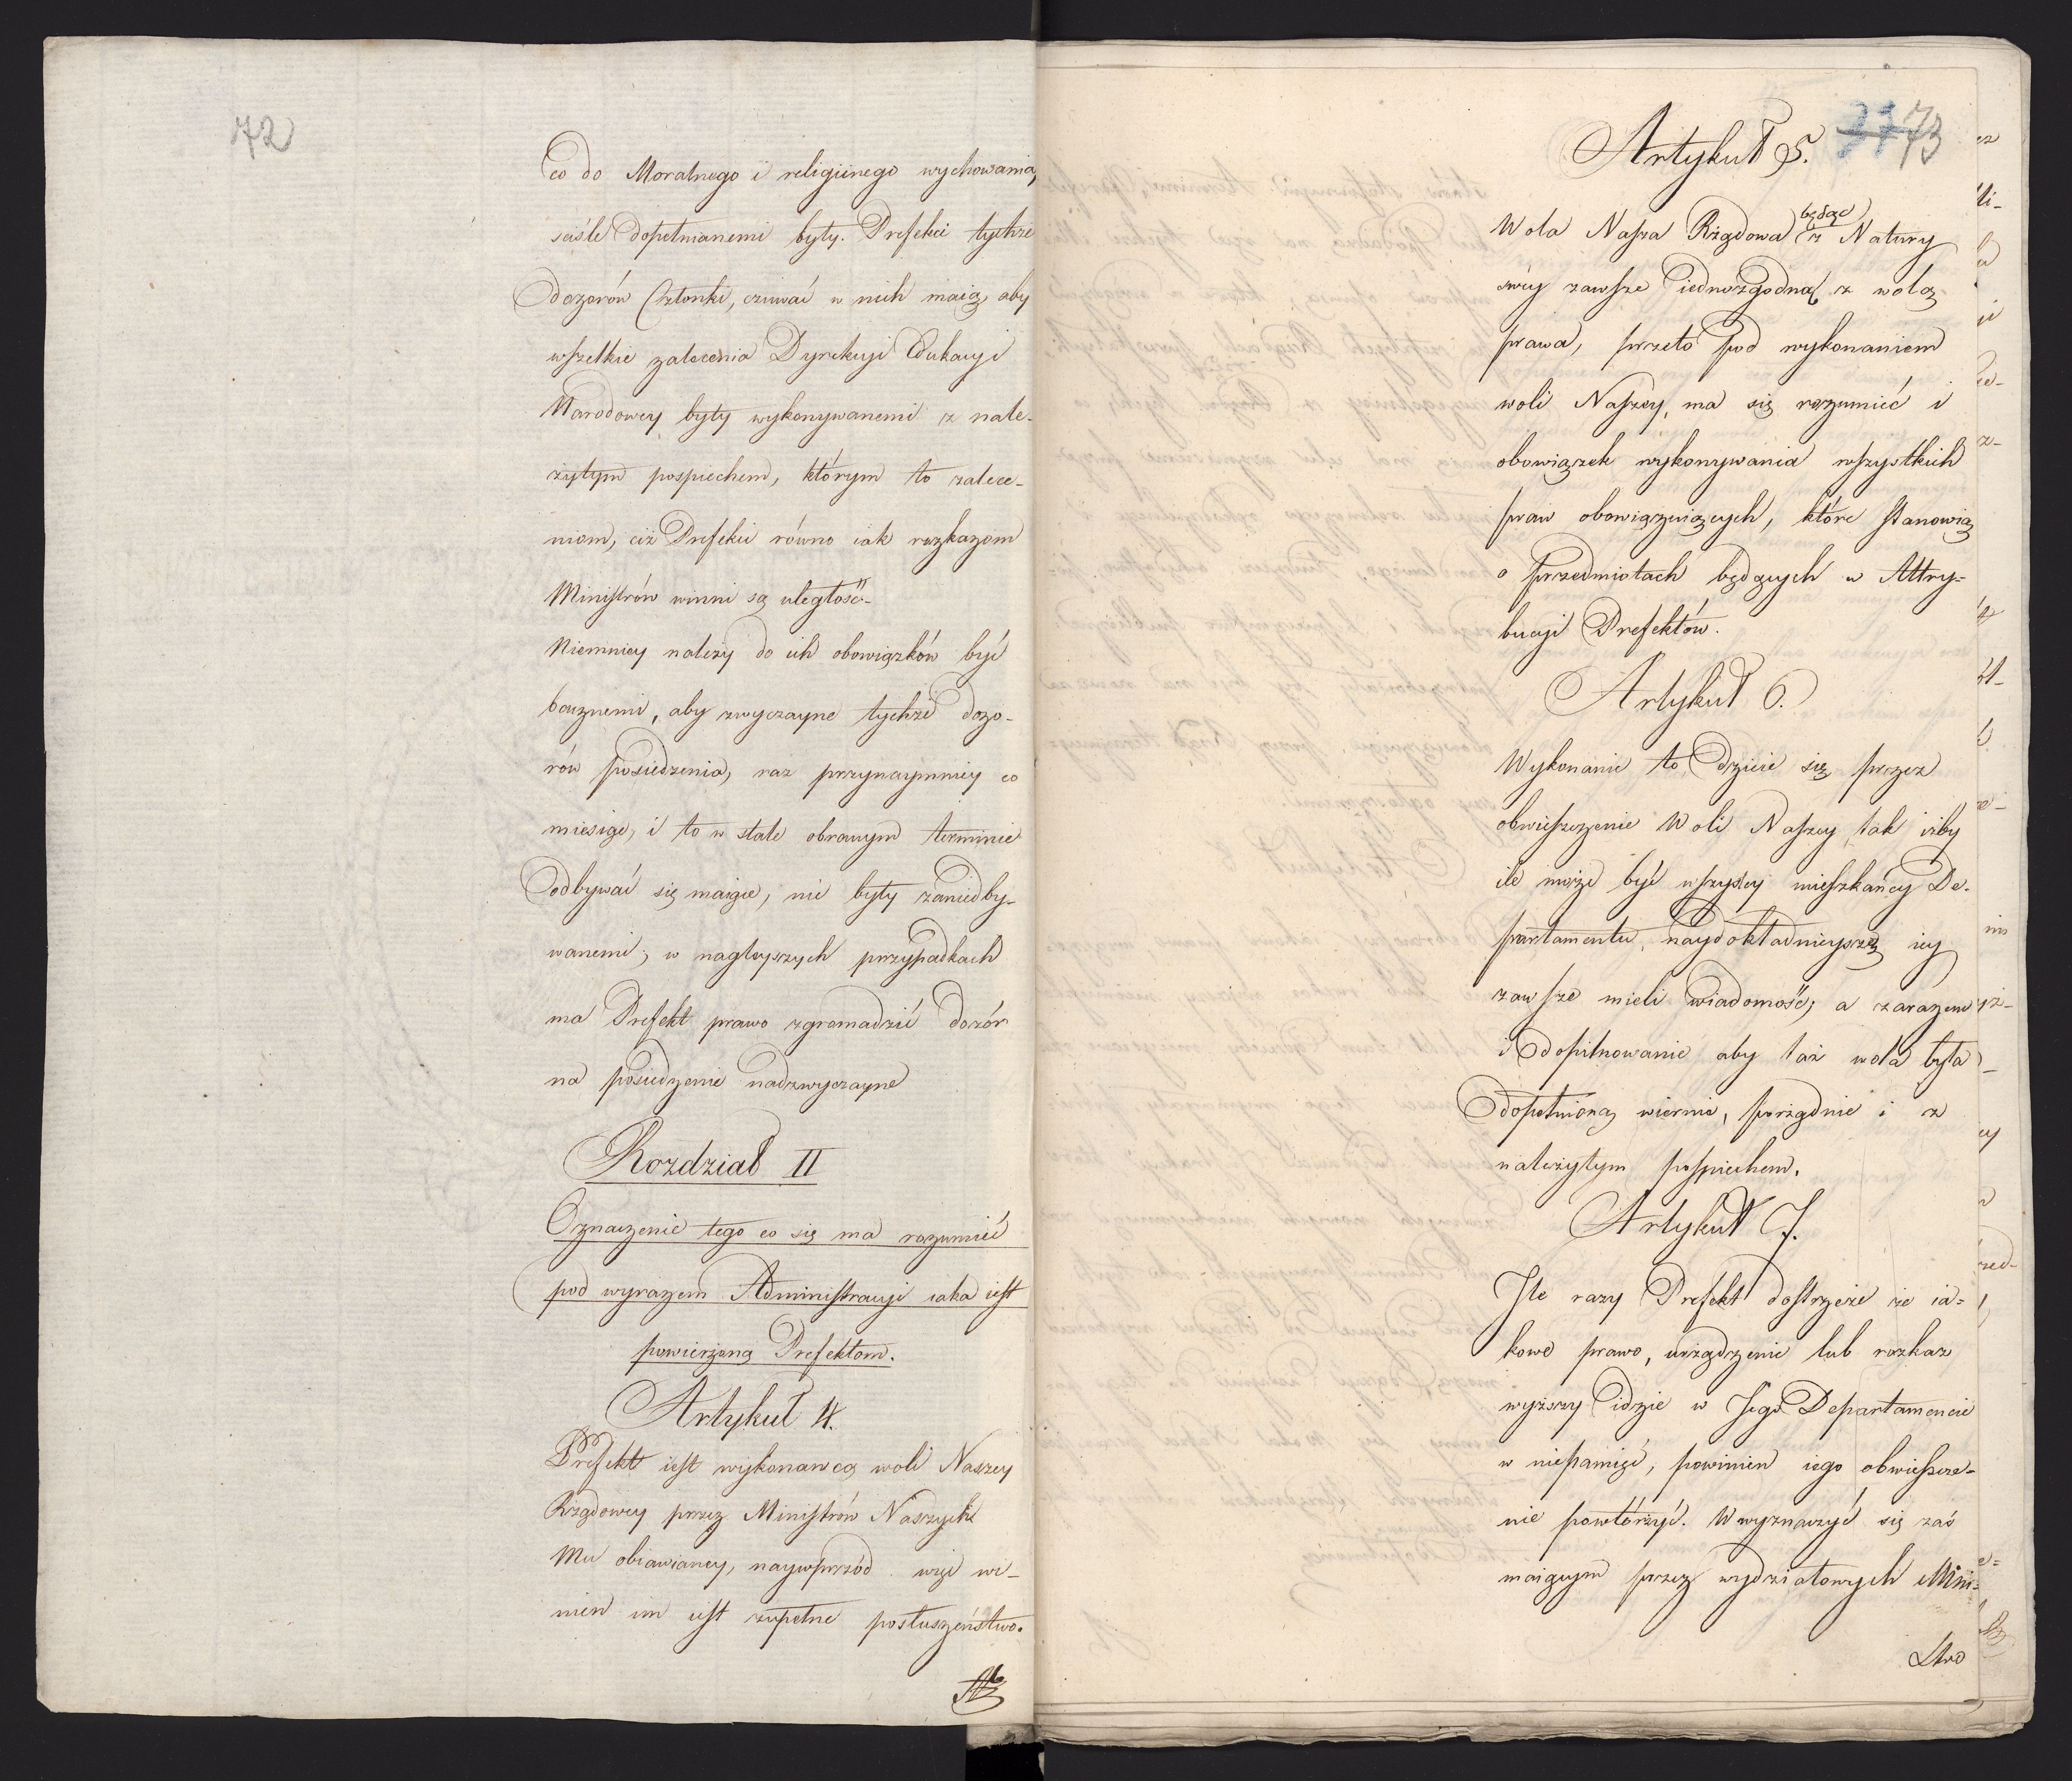 72
co do Moralnego i religiinego wychowania,
ściśle dopełnianemi były. Prefekci tychże
dozorów Członki, czuwać w nich maią, aby
wszelkie zalecenia Dyrekcyi Edukacyi
Narodowey były wykonywanemi z nale-
żytym pospiechem, którym to zalece-
niom, ciż Prefekci równo iak rozkazom
Ministrów winni są uległość.-
Niemniey należy do ich obowiązków być
bacznemi, aby zwyczayne tychże dozo-
rów posiedzenia, raz przynaymniey co
miesiąc, i to w stale obranym terminie
odbywać się maiące, nie były zaniedby-
wanemi; w nagleyszych przypadkach
ma Prefekt prawo zgromadzić dozór
na posiedzenie nadzwyczayne
Rozdział II
Oznaczenie tego co się ma rozumieć
pod wyrazem Administracyi iaka iest
powierzoną Prefektom.
Artykuł 4.
Prefekt iest wykonawcą woli Naszey
Rządowey przez Ministrów Naszych
Mu obiawianey, naywprzód więc wi-
nien im iest zupełne posłuszeństwo.
73
Artykuł 5.
będąc
Wola Nasza Rządowa z Natury
swey zawsze iednozgodną z wolą
prawa, przeto pod wykonaniem
woli Naszey, ma się rozumieć i
obowiązek wykonywania wszystkich
praw obowiązuiących, które stanowią
o przedmiotach będących w Attry-
bucyi Prefektów.
Artykuł 6.
Wykonanie to dzieie się przez
obwieszczenie Woli Naszey tak iżby
ile może być wszyscy mieszkańcy De-
partamentu, naydokładnieyszą iey
zawsze mieli wiadomość; a zarazem
i dopilnowanie aby taż wola była
dopełnioną wiernie, porządnie i z
należytym pospiechem.
Artykuł 7.
Ile razy Prefekt dostrzeże że ia-
kowe prawo, urządzenie lub rozkaz
wyższy idzie w Jego Departamencie
w niepamięć, powinien iego obwieszcze-
nie powtórzyć. Wwyznaczyć się zaś
maiącym przez wydziałowych Mini-